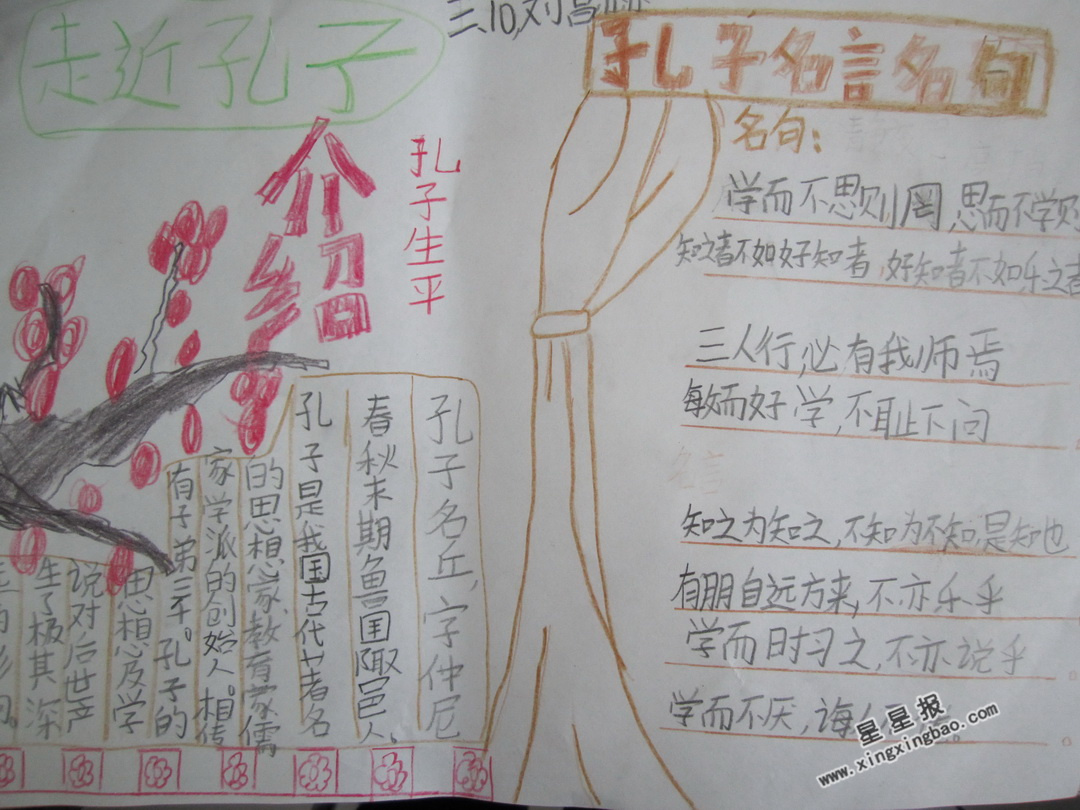 走近孔子
三10,刘
介绍
孔子生平
孔子名丘,字仲尼
春秋末期鲁国陬邑人。
孔子是我国古代著名
的思想家、教育家儒
家学派的创始人。相传
有子弟三千。孔子的
思想及学
说对后世产
生了极其深
孔子名言名句
名句:
学而不思则罔,思而不学则
知之者不如好知者,好知者不如乐之者
三人行,必有我师焉
敏而好学,不耻下问
名言
知之为知之,不知为不知,是知也
有朋自远方来,不亦乐乎
学而时习之,不亦说乎
学而不厌,诲人
星星报
www.xingxingbao.com